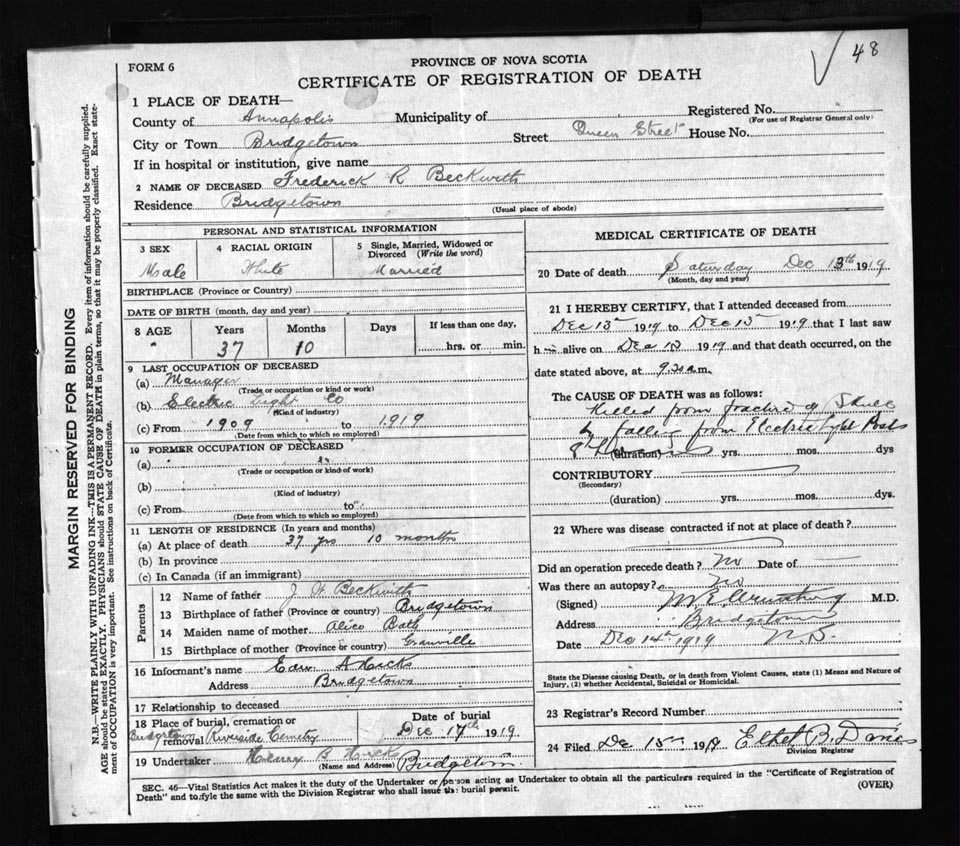 48
FORM 6
PROVINCE OF NOVA SCOTIA
CERTIFICATE OF REGISTRATION OF DEATH
1 PLACE OF DEATH—
County of Annapolis Municipality of Registered No.
(For use of Registrar General only)
City or Town Bridgetown Street Queen Street House No.
If in hospital or institution, give name
2 NAME OF DECEASED Frederick R Beckwith
Residence Bridgetown
(Usual place of abode)
PERSONAL AND STATISTICAL INFORMATION
3 SEX 4 RACIAL ORIGIN 5 Single, Married, Widowed or Divorced (Write the word)
Male White Married
BIRTHPLACE (Province or Country)
DATE OF BIRTH (month, day and year)
8 AGE Years Months Days If less than one day,
" 37 10 hrs. or min.
9 LAST OCCUPATION OF DECEASED
(a) Manager
(Trade or occupation or kind or work)
(b) Electric Light Co
(Kind of industry)
(c) From 1909 to 1919
(Date from which to which so employed)
10 FORMER OCCUPATION OF DECEASED
(a)
(Trade or occupation or kind of work)
(b)
(Kind of industry)
(c) From to
(Date from which to which so employed)
11 LENGTH OF RESIDENCE (In years and months)
(a) At place of death 37 yrs 10 months
(b) In province
(c) In Canada (if an immigrant)
Parents
12 Name of father J H Beckwith
13 Birthplace of father (Province or country) Bridgetown
14 Maiden name of mother Alice Bath
15 Birthplace of mother (Province or country) Granville
16 Informant's name Edw. A Hicks
Address Bridgetown
17 Relationship to deceased
18 Place of burial, cremation or removal Bridgetown Riverside Cemetery
Date of burial
Dec 17th 1919
19 Undertaker Harry B Hicks Bridgetown
(Name and Address)
MEDICAL CERTIFICATE OF DEATH
20 Date of death Saturday Dec 13th 1919
(Month, day and year)
21 I HEREBY CERTIFY, that I attended deceased from
Dec 13th 1919 to Dec 13th 1919 that I last saw
him alive on Dec 13 1919 and that death occurred, on the
date stated above, at 9.30 a.m.
The CAUSE OF DEATH was as follows:
Killed from fracture of Skull
by falling from Electric Light Posts
(duration) yrs. mos. dys
CONTRIBUTORY
(Secondary)
(duration) yrs. mos. dys.
22 Where was disease contracted if not at place of death?
Did an operation precede death? No Date of
Was there an autopsy? No
(Signed) M.E. Armstrong M.D.
Address Bridgetown
Date Dec 14th 1919 N.S.
State the Disease causing Death, or in death from Violent Causes, state (1) Means and Nature of
Injury, (2) whether Accidental, Suicidal or Homicidal.
23 Registrar's Record Number
24 Filed Dec 15th 1919 Ethel B. Davies
Division Registrar
SEC. 46—Vital Statistics Act makes it the duty of the Undertaker or person acting as Undertaker to obtain all the particulers required in the "Certificate of Registration of
Death" and to fyle the same with the Division Registrar who shall issue the burial permit.
(OVER)
MARGIN RESERVED FOR BINDING
N.B.—WRITE PLAINLY WITH UNFADING INK—THIS IS A PERMANENT RECORD. Every item of information should be carefully supplied.
AGE should be stated EXACTLY. PHYSICIANS should STATE CAUSE OF DEATH in plain terms, so that it may be properly classified. Exact state-
ment of OCCUPATION is very important. See instructions on back of Certificate.